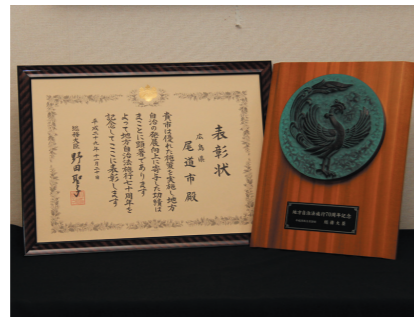 表彰状
広島県
尾道市殿
貴市は優れた施策を実施し地方
自治の発展向上に寄与した功績は
まことに顕著であります
よって地方自治法施行七十周年を
記念してここに表彰します
平成二十九年十一月二十日
総務大臣 野田聖子
地方自治法施行70周年記念
総務大臣